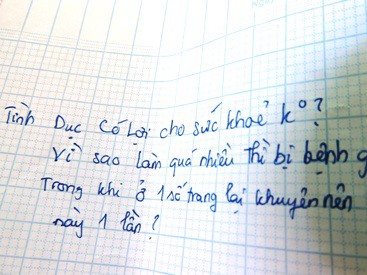 Tình Dục Có Lợi cho sức khoẻ k°?
Vì sao làm quá nhiều thì bị bệnh
Trong khi ở 1 số trang lại khuyên nên
này 1 lần?